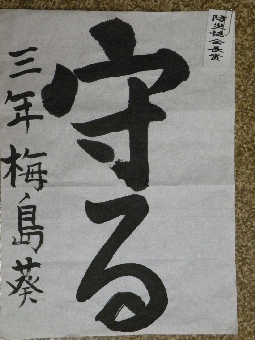 防災協会長賞
守る
三年梅島葵